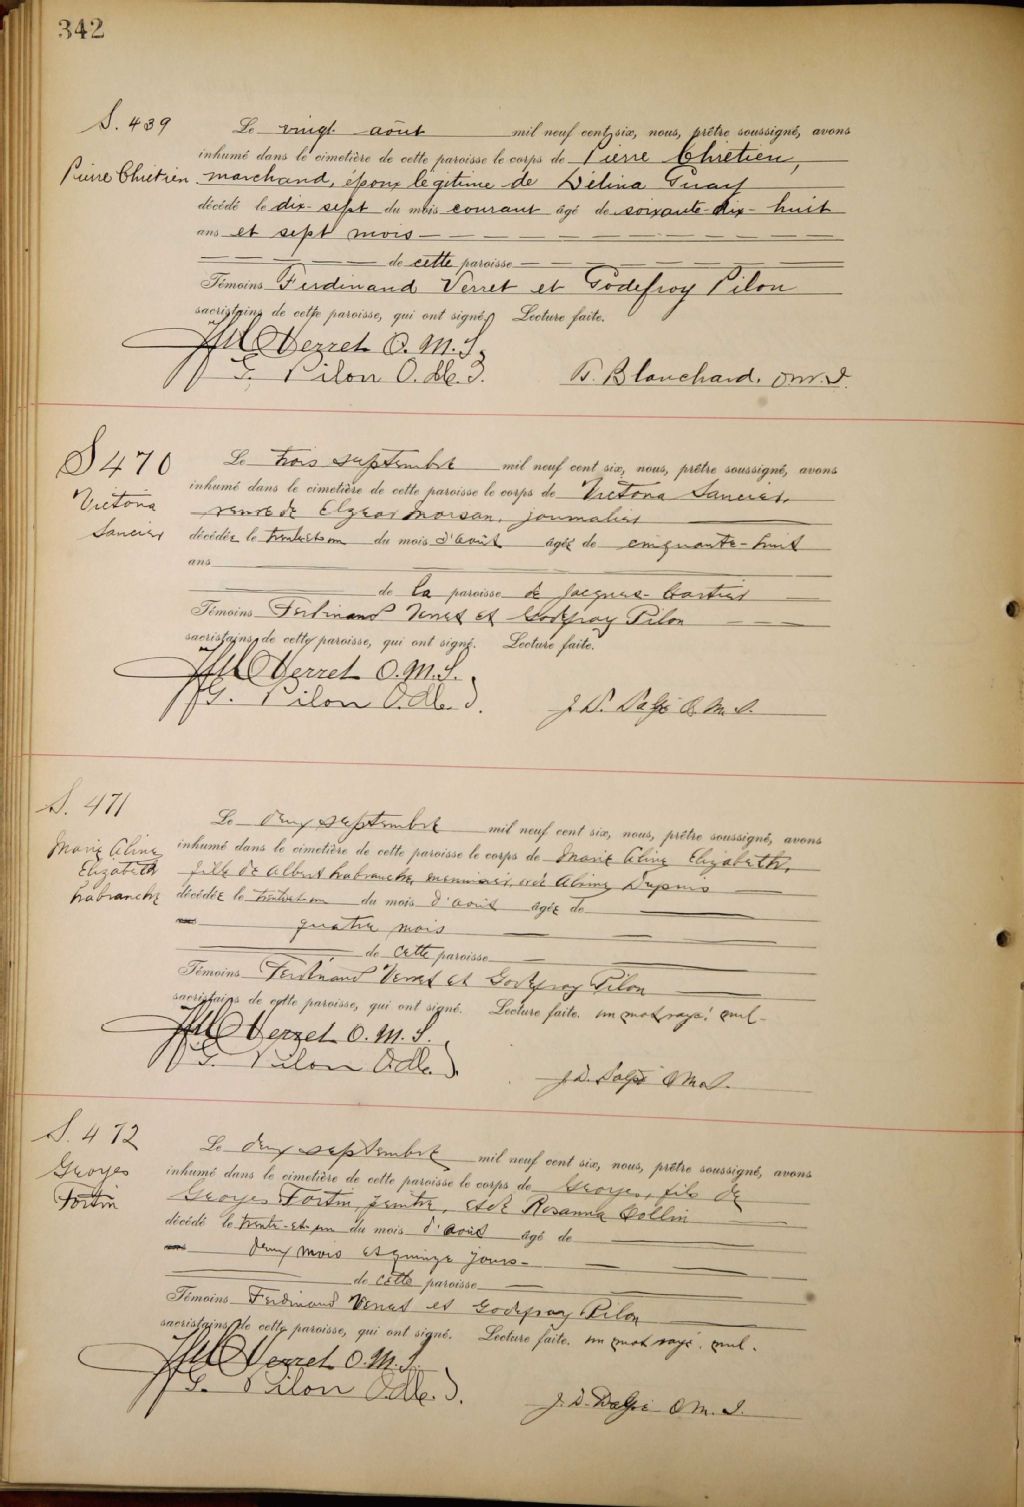 342
S. 439
Pierre Chrétien
Le vingt août mil neuf cent six, nous, prêtre soussigné, avons
inhumé dans le cimetière de cette paroisse le corps de Pierre Chrétien,
marchand, époux légitime de Délina Guay
décédé le dix-sept du mois courant âgé de soixante-dix-huit
ans et sept mois
de cette paroisse
Témoins Ferdinand Verret et Godefroy Pilon
sacristains de cette paroisse, qui ont signé. Lecture faite.
Verret O. M. I.
G. Pilon O. M. I.
Blanchard, O.M.I.
S 470
Victoria
Sancier
Le trois septembre mil neuf cent six, nous, prêtre soussigné, avons
inhumé dans le cimetière de cette paroisse le corps de Victoria Sancier,
veuve de Elzear Morsan, journalier
décédée le trente et un du mois d'août âgée de cinquante-huit
ans
de la paroisse de Jacques-Cartier
Témoins Ferdinand Verret et Godefroy Pilon
sacristains de cette paroisse, qui ont signé. Lecture faite.
Verret O.M.I.
G. Pilon O.M.I.
J. D. Dalpé O.M.I.
S. 471
Marie Aline
Elizabeth
Labranche
Le deux septembre mil neuf cent six, nous, prêtre soussigné, avons
inhumé dans le cimetière de cette paroisse le corps de Marie Aline Elizabeth,
fille de Albert Labranche, menuisier, et de Alina Dupuis
décédée le trente et un du mois d'août âgée de
quatre mois
de cette paroisse
Témoins Ferdinand Verret et Godefroy Pilon
sacristains de cette paroisse, qui ont signé. Lecture faite. un mot rayé nul.
Verret O. M. I.
G. Pilon O.M.I.
J. D. Dalpé O M I.
S. 472
Georges
Fortin
Le deux septembre mil neuf cent six, nous, prêtre soussigné, avons
inhumé dans le cimetière de cette paroisse le corps de Georges, fils de
Georges Fortin, peintre, et de Rosanna Collin
décédé le trente-et-un du mois d'août âgé de
deux mois et quinze jours
de cette paroisse
Témoins Ferdinand Verret et Godefroy Pilon
sacristains de cette paroisse, qui ont signé. Lecture faite. un mot rayé nul.
Verret O.M.I.
G. Pilon O.M.I.
J. D. Dalpé O M. I.